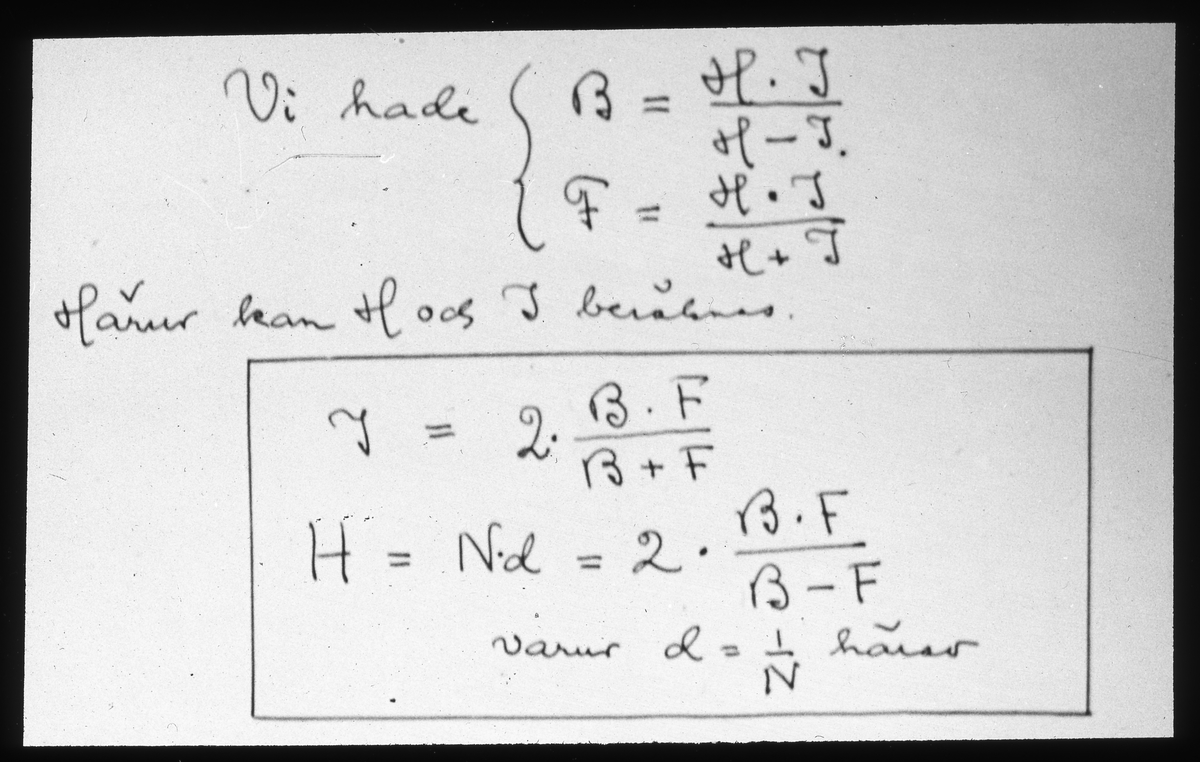 Vi hade { B = H · I / H − I.
F = H · I / H + I
Härur kan H och I beräknas.
I = 2 · B · F / B + F
H = N·d = 2 · B · F / B − F
varur d = 1/N